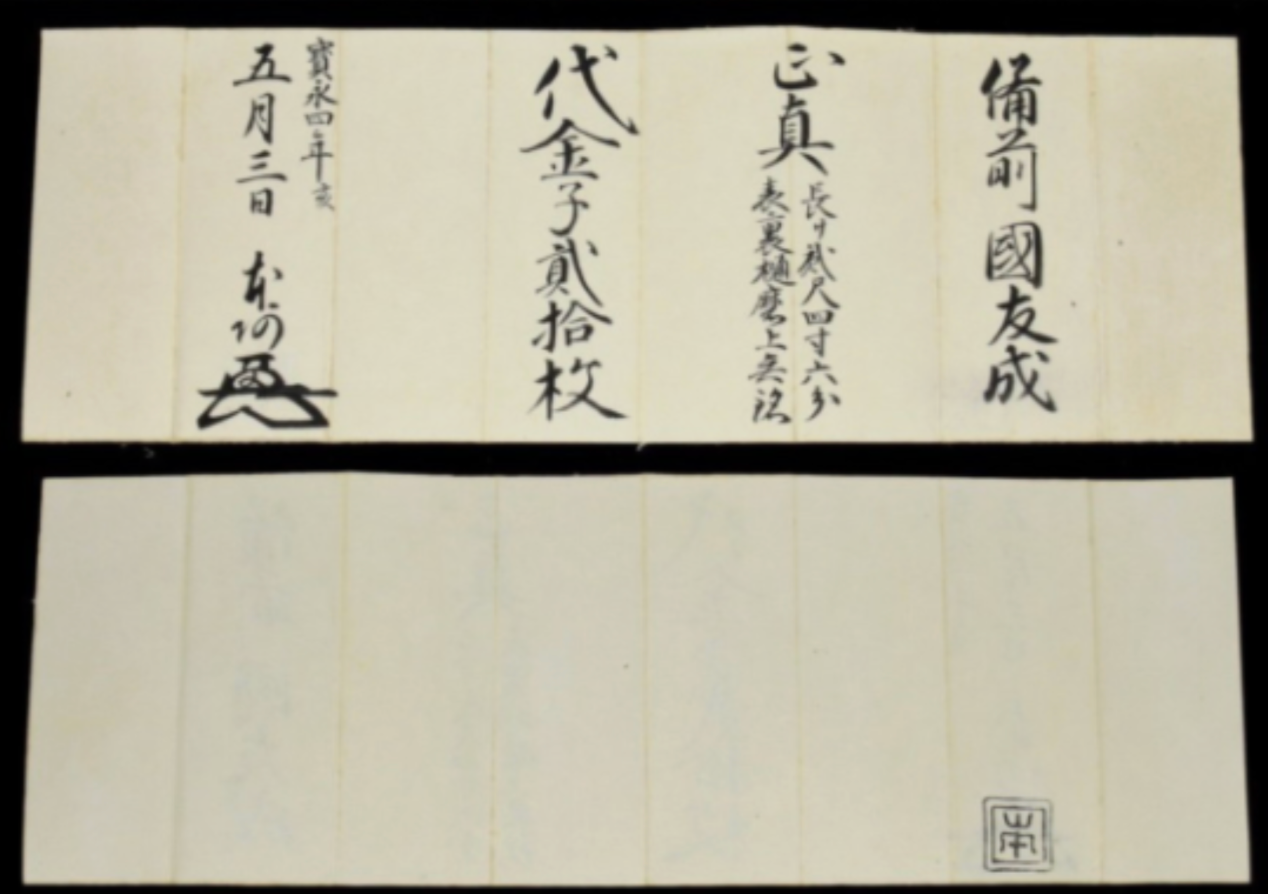 備前國友成
正真
長サ貳尺四寸六分
表裏樋磨上無銘
代金子貳拾枚
寳永四年亥
五月三日
本阿
本